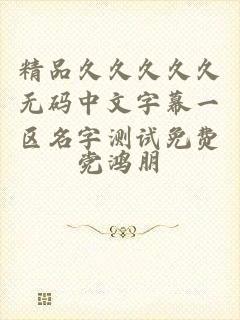 精品久久久久久
无码中文字幕一
区名字测试免费
党鸿朋